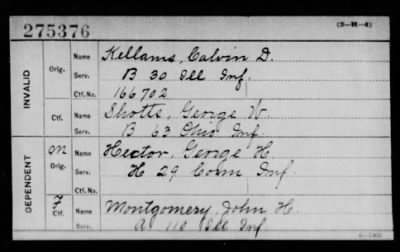 275376
(3-W-4)
INVALID
Orig.
Name Kellams, Calvin D.
Serv. B 30 Ill Inf.
Ctf. No. 166702
Ctf.
Name Shotts, George W.
Serv. B 63 Ohio Inf.
DEPENDENT
M
Orig.
Name Hector, George H.
Serv. H 29 Conn Inf.
Ctf. No.
F
Ctf.
Name Montgomery, John H.
Serv. A 110 Ill Inf.